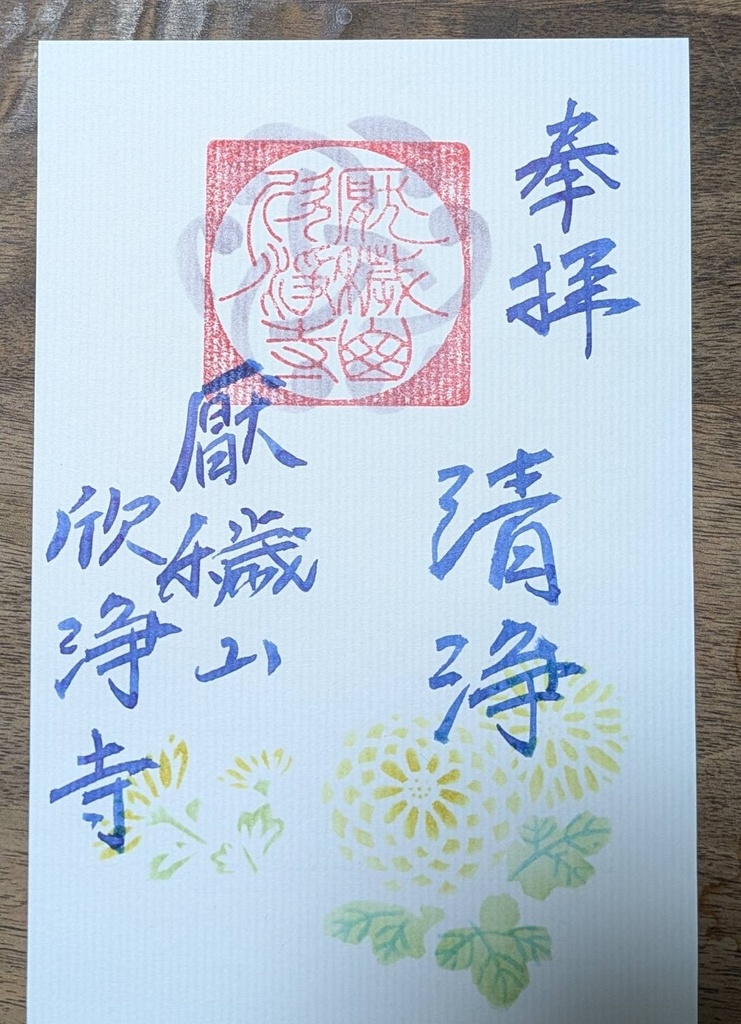 奉拝
清浄
厭穢山
欣浄寺
厭穢山
欣浄寺